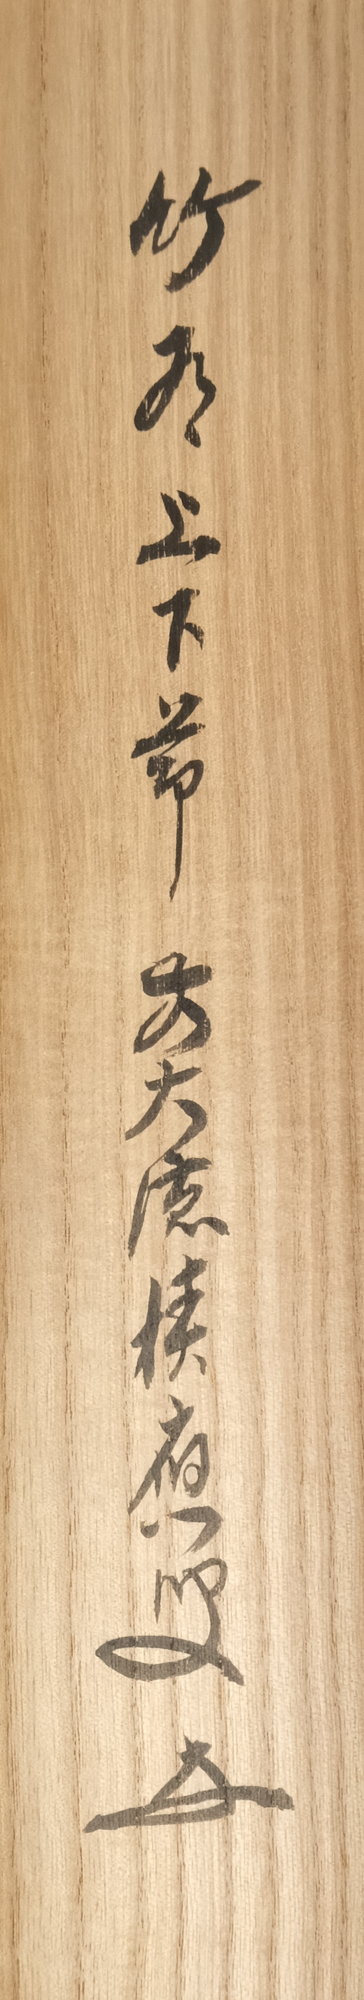 竹有上下節 前大徳積應叟